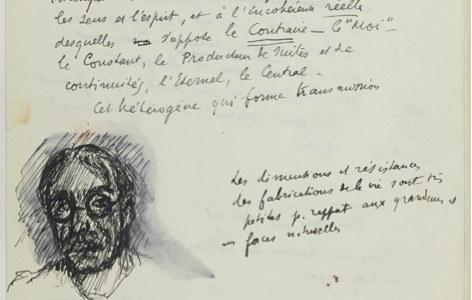 les sens et l'esprit, et à l'incohérence réelle
desquelles s'oppose le Contraire — le "Moi" —
le Constant, le Producteur de suites et de
continuités, l'Eternel, le Central —
Cet hétérogène qui forme transmission
Les dimentions et résistances
des fabrications de la vie sont très
petites p. rappt aux grandeurs et
forces naturelles